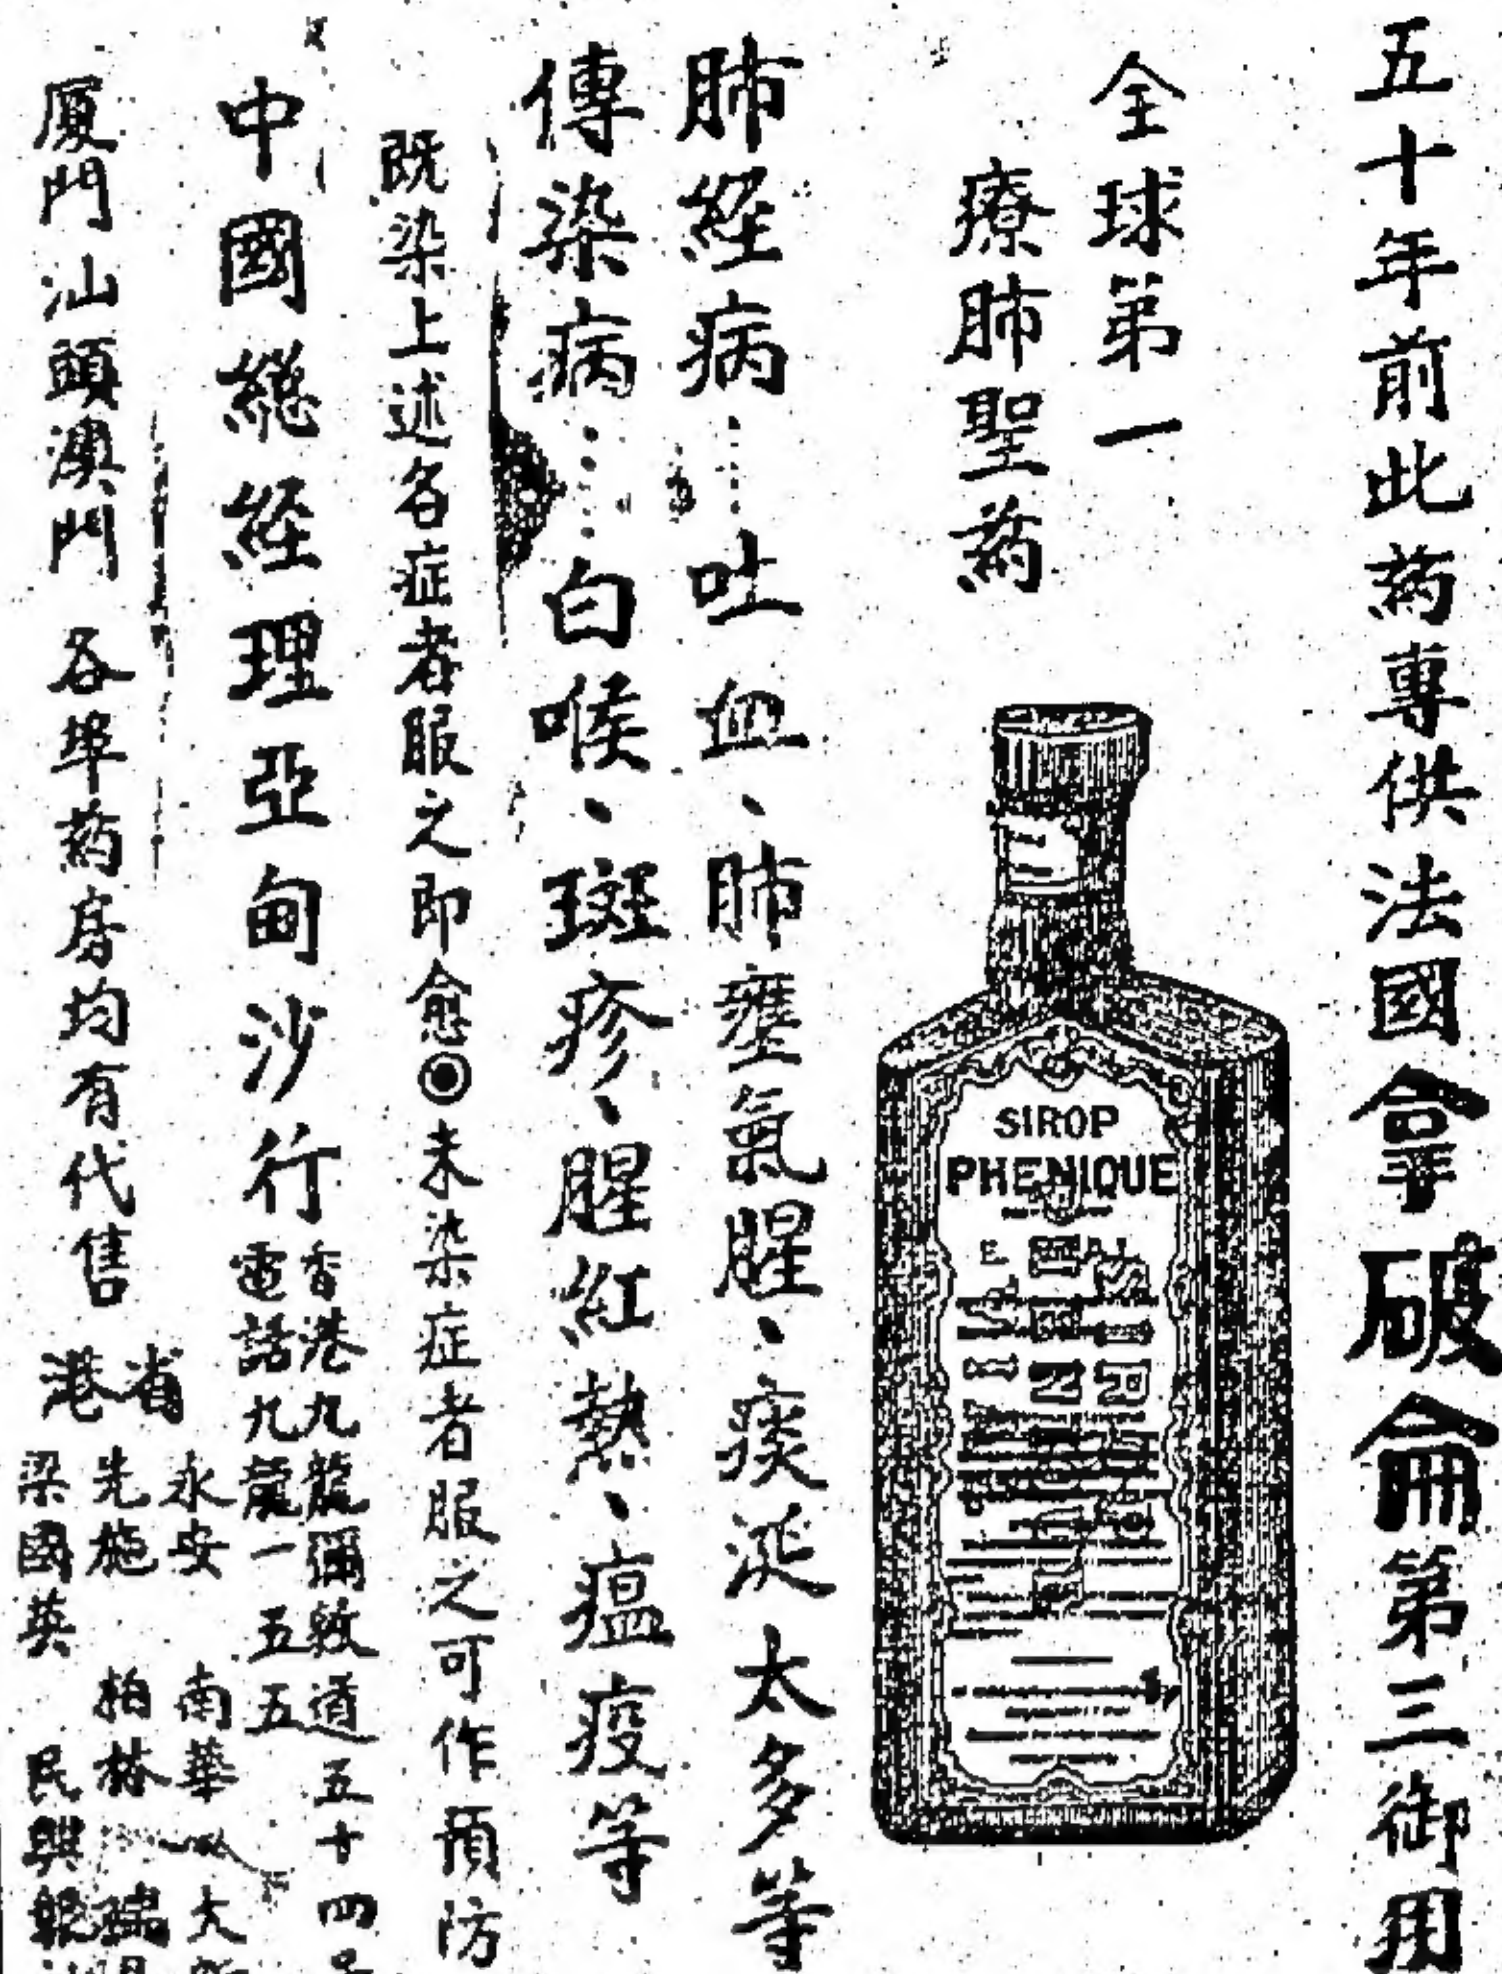 五十年前此葯專供法國拿破侖第三御用
全球第一
療肺聖葯
SIROP
PHENIQUE
肺経病⋯⋯吐血、肺壅氣腥、痰涎太多等
傳染病⋯⋯白喉、斑疹、腥紅熱、瘟疫等
既染上述各症者服之即愈◎未染症者服之可作預防
中國総経理亞甸沙行
香港九龍彌敦道五十四
電話九龍一五五
厦門汕頭澳門 各埠葯房均有代售
省港
永安 南華 大
先施 柏林
梁國英 民興